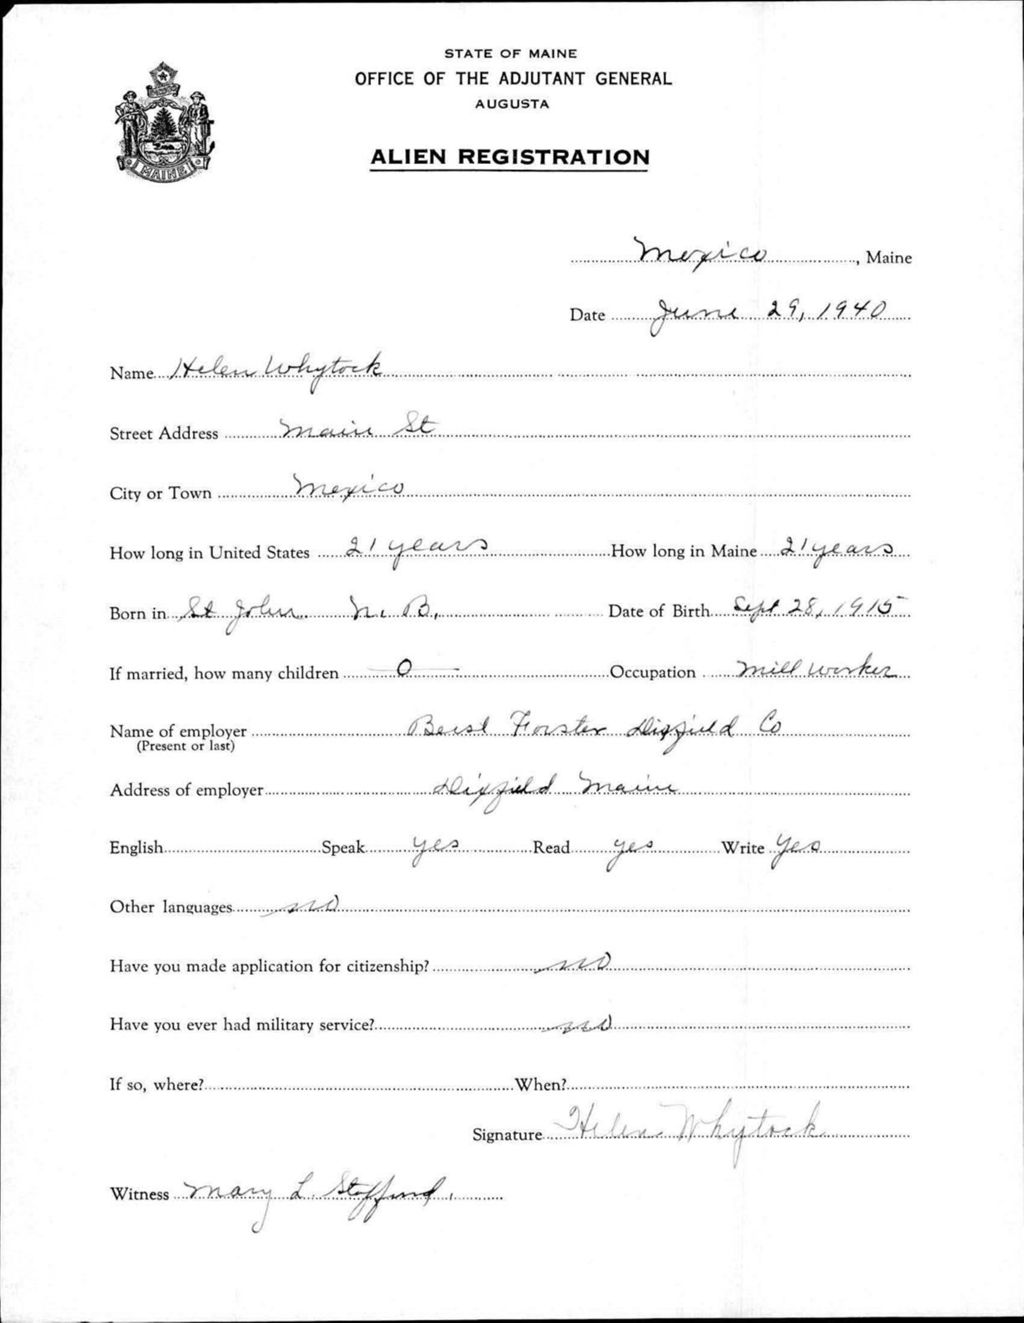 STATE OF MAINE
OFFICE OF THE ADJUTANT GENERAL
AUGUSTA
ALIEN REGISTRATION
MAINE
Mexico, Maine
Date June 29, 1940
Name Helen Whytock
Street Address Main St
City or Town Mexico
How long in United States 21 years How long in Maine 21 years
Born in St John N. B. Date of Birth Sept 28, 1915
If married, how many children 0 Occupation Mill worker
Name of employer Forster Dixfield Co
(Present or last)
Address of employer Dixfield Maine
English Speak yes Read yes Write Yes
Other languages no
Have you made application for citizenship? no
Have you ever had military service? no
If so, where? When?
Signature Helen Whytock
Witness Mary L. Stafford.